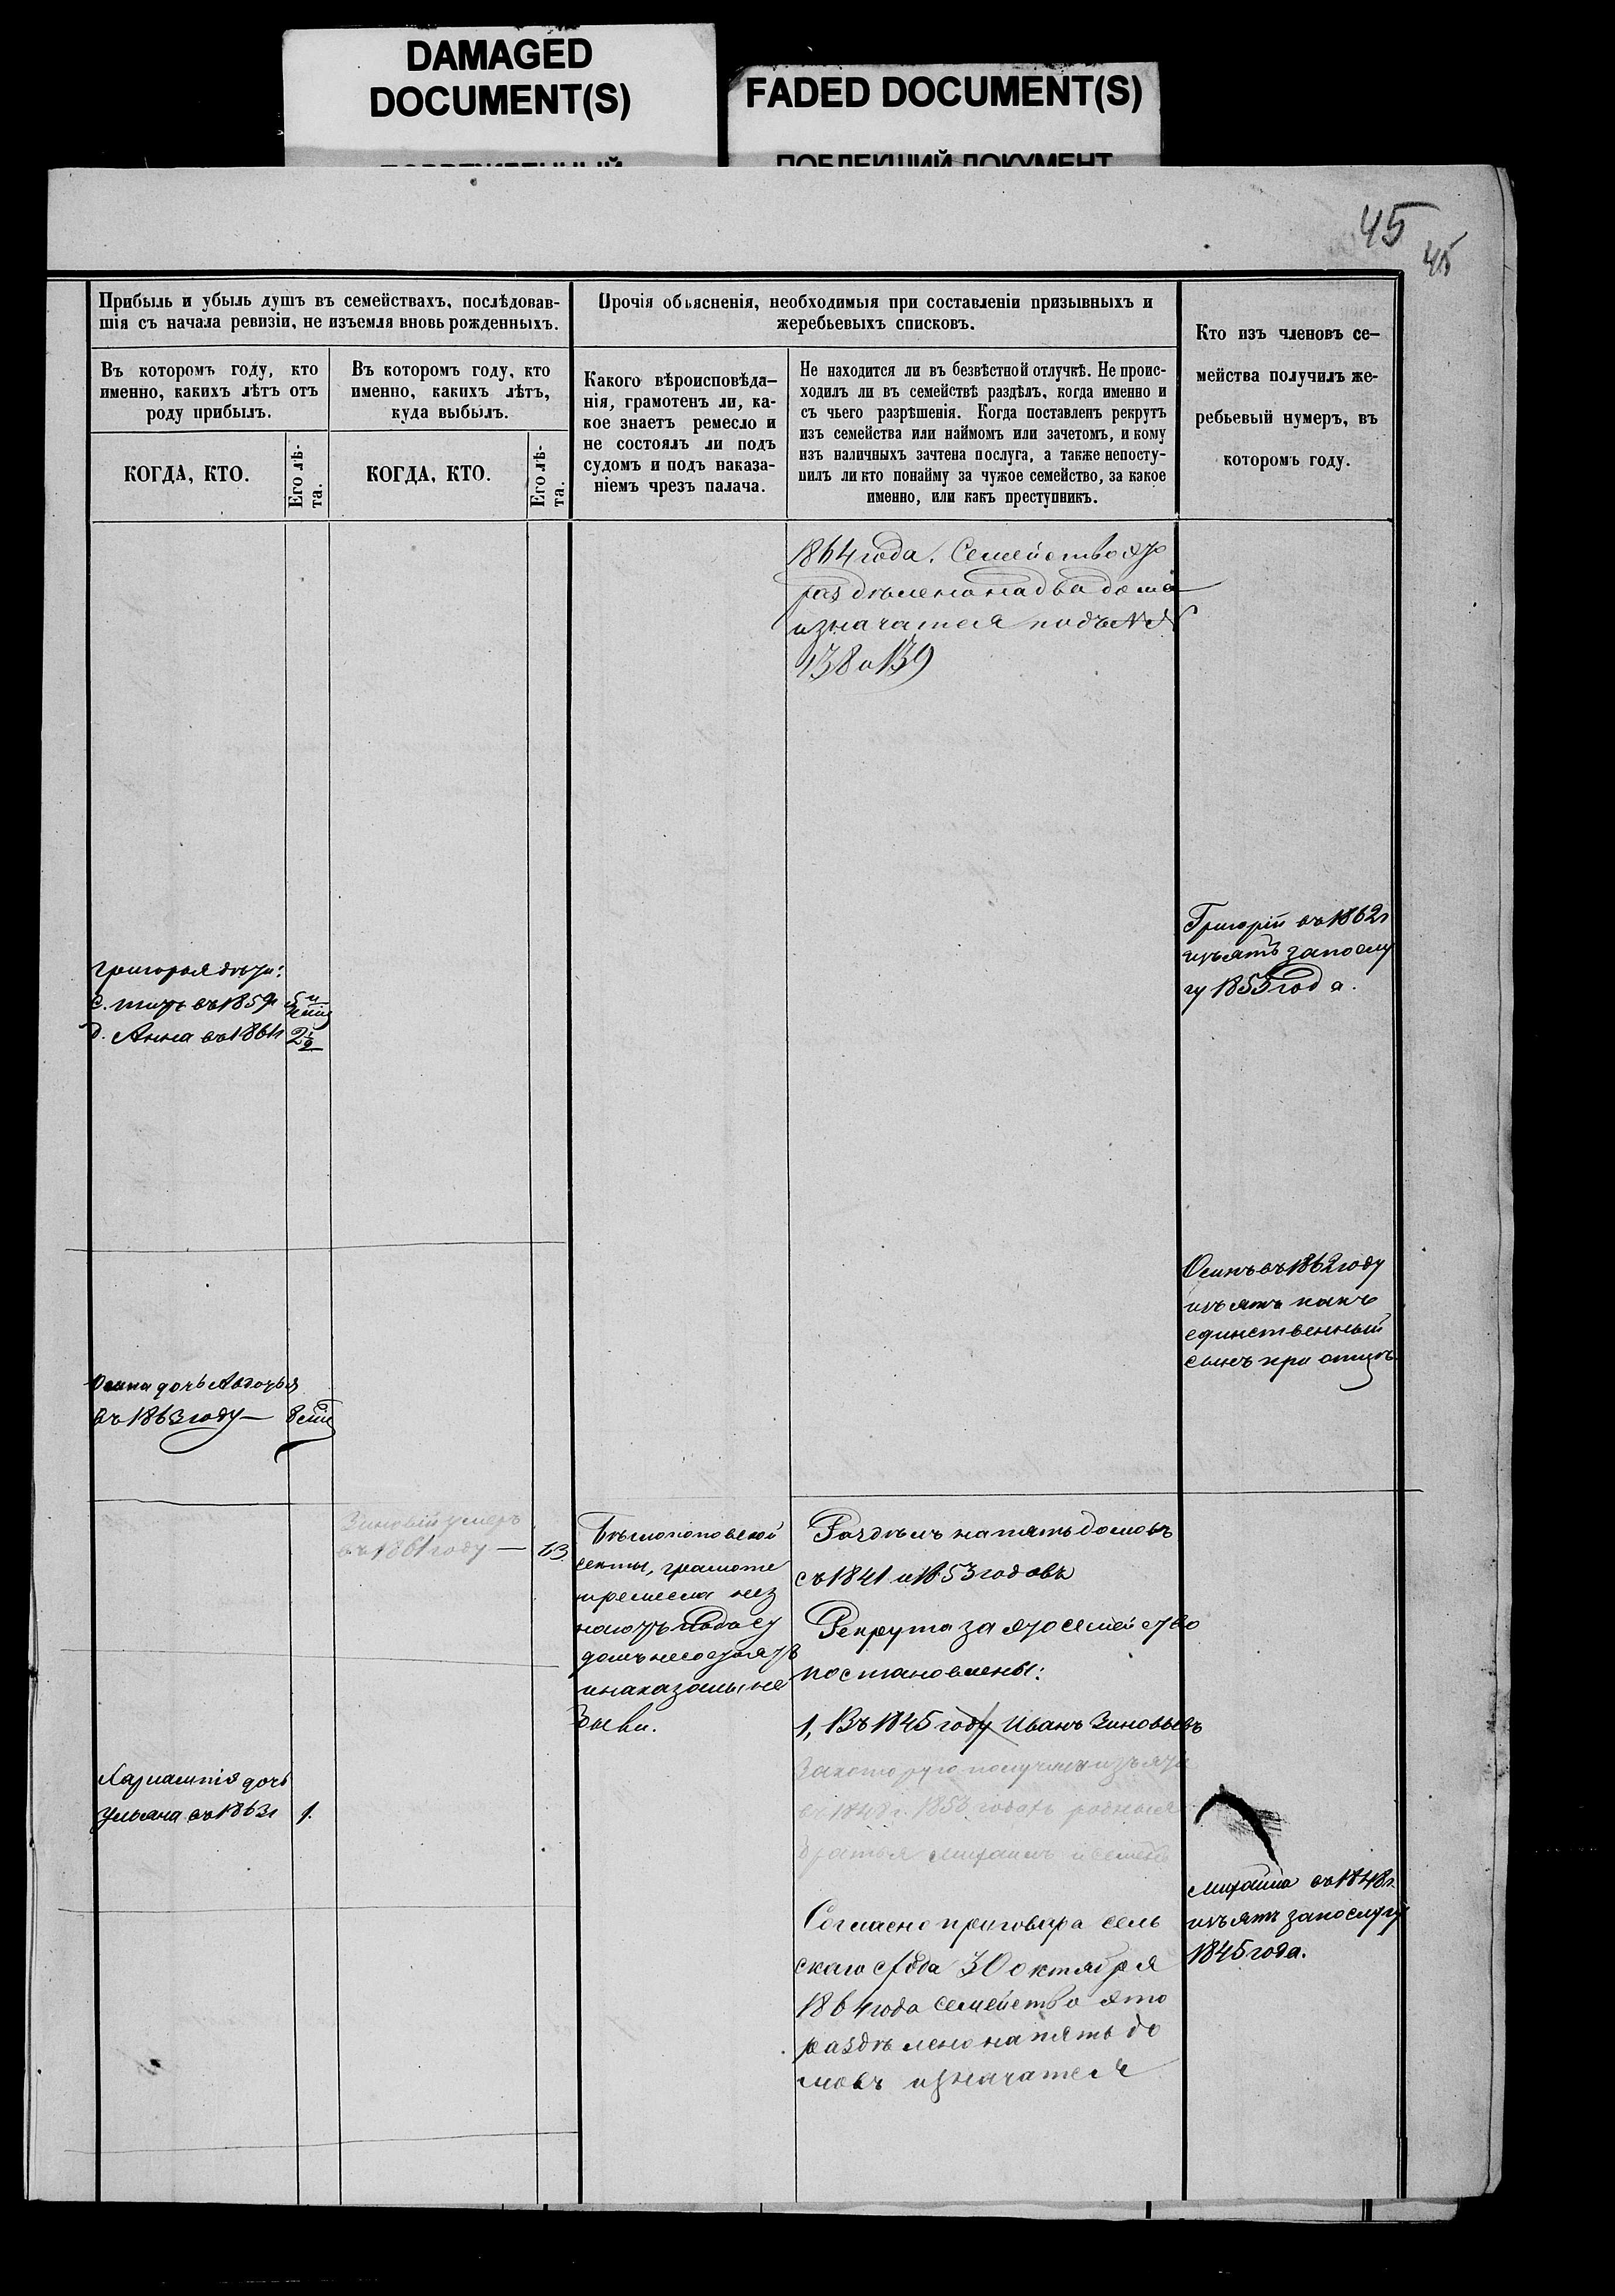 DAMAGED
DOCUMENT(S)
FADED DOCUMENT(S)
ПОБЛЕКШИЙ ДОКУМЕНТ
45
45
Прибыль и убыль душъ въ семействахъ, послѣдовав-
шія съ начала ревизіи, не изъемля вновь рожденныхъ.
Въ которомъ году, кто
именно, какихъ лѣтъ отъ
роду прибылъ.
Въ которомъ году, кто
именно, какихъ лѣтъ,
куда выбылъ.
КОГДА, КТО.
Его лѣ-
та.
КОГДА, КТО.
Его лѣ-
та.
Прочія объясненія, необходимыя при составленіи призывныхъ и
жеребьевыхъ списковъ.
Какого вѣроисповѣда-
нія, грамотенъ ли, ка-
кое знаетъ ремесло и
не состоялъ ли подъ
судомъ и подъ наказа-
ніемъ чрезъ палача.
Не находится ли въ безвѣстной отлучкѣ. Не проис-
ходилъ ли въ семействѣ раздѣлъ, когда именно и
съ чьего разрѣшенія. Когда поставленъ рекрутъ
изъ семейства или наймомъ или зачетомъ, и кому
изъ наличныхъ зачтена послуга, а также непосту-
пилъ ли кто понайму за чужое семейство, за какое
именно, или какъ преступникъ.
Кто изъ членовъ се-
мейства получилъ же-
ребьевый нумеръ, въ
которомъ году.
1864 года. Семейство это
раздѣлено на два дома
и значатся подъ №№
138 и 139
Григорій въ 1862 г
изъятъ за послу
гу 1855 года.
Григорья дѣти:
с. въ 1859 г
д. Анна въ 1861 г 2½
Осипъ въ 1862 году
изъятъ какъ
единственный
сынъ при отцѣ.
Осипа дочь Авдотья
въ 1863 году —
Зиновій умеръ
въ 1861 году — 63
Безпоповской
секты, грамоте
и ремесла нез
наютъ подъ су
домъ несостоятъ
и наказаны не
были.
Раздѣлъ на пять домовъ
съ 1841 и 1853 годовъ
Рекрута за это семейство
постановлены:
1, Въ 1845 году Иванъ Зиновьевъ
за которую получили изъятія
въ 1848 г. 1850 годахъ родныя
братья Михаилъ и Семенъ
Согласно приговора сель
скаго схода 30 октября
1864 года семейство это
раздѣлено на пять до
мовъ и значатся
дочь
Ульяна въ 1863 г 1.
Михаила въ 1848 г.
изъятъ за послугу
1845 года.